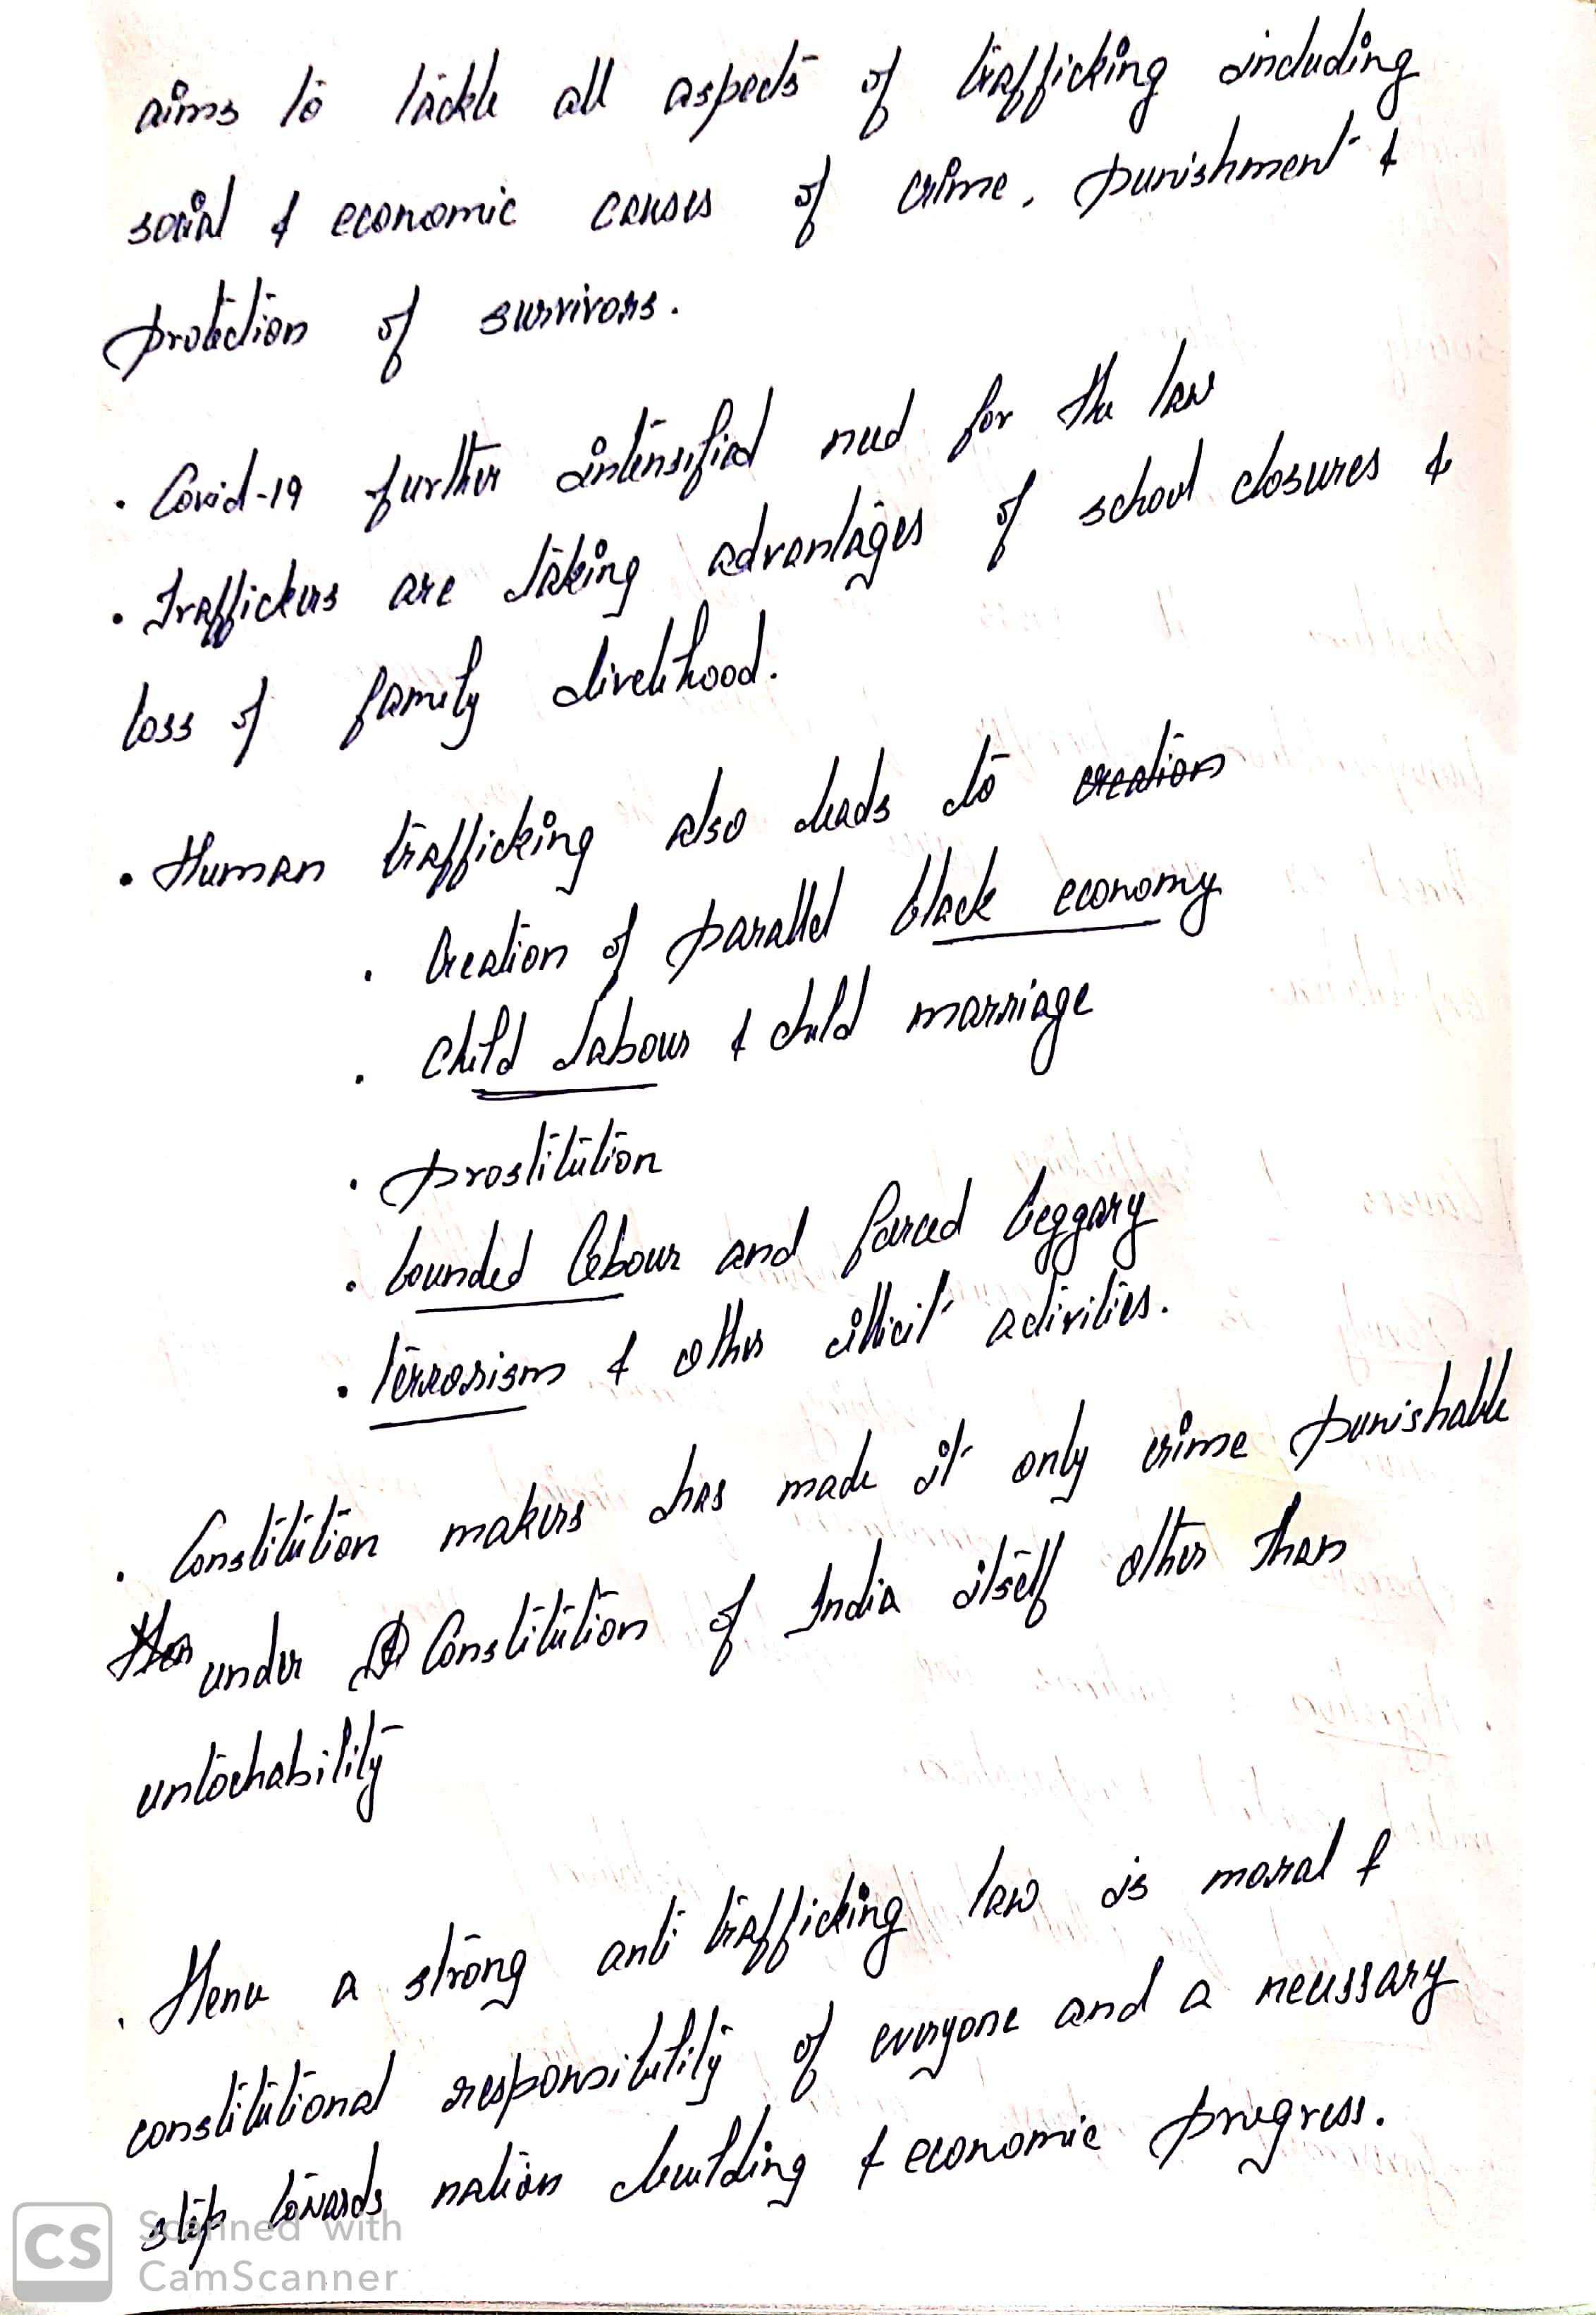 aims to tackle all aspects of trafficking including
social & economic causes of crime, punishment &
protection of survivors.
. Covid-19 further intensified need for the law
• Traffickers are taking advantages of school closures &
loss of family livelihood.
• Human trafficking also leads to creation
. Creation of parallel black economy
. child labour & child marriage
. prostitution
. bounded labour and forced beggary
. terrorism & other illicit activities.
. Constitution makers has made it only crime punishable
under Constitution of India itself other than
untochability
. Hence a strong anti trafficking law is moral &
constitutional responsibility of everyone and a necessary
step towards nation building & economic progress.
CS Scanned with
CamScanner